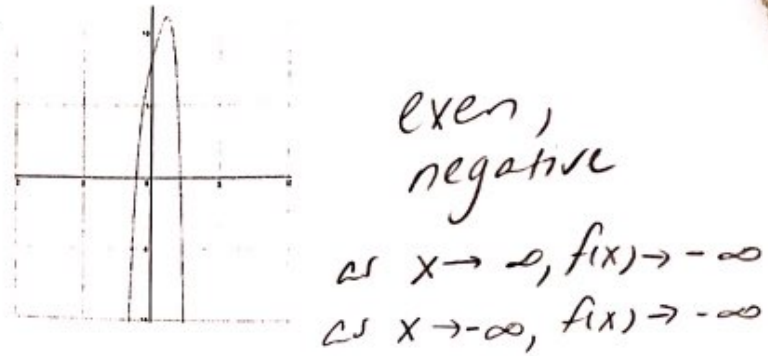 even,
negative
as x → ∞, f(x) → -∞
as x → -∞, f(x) → -∞